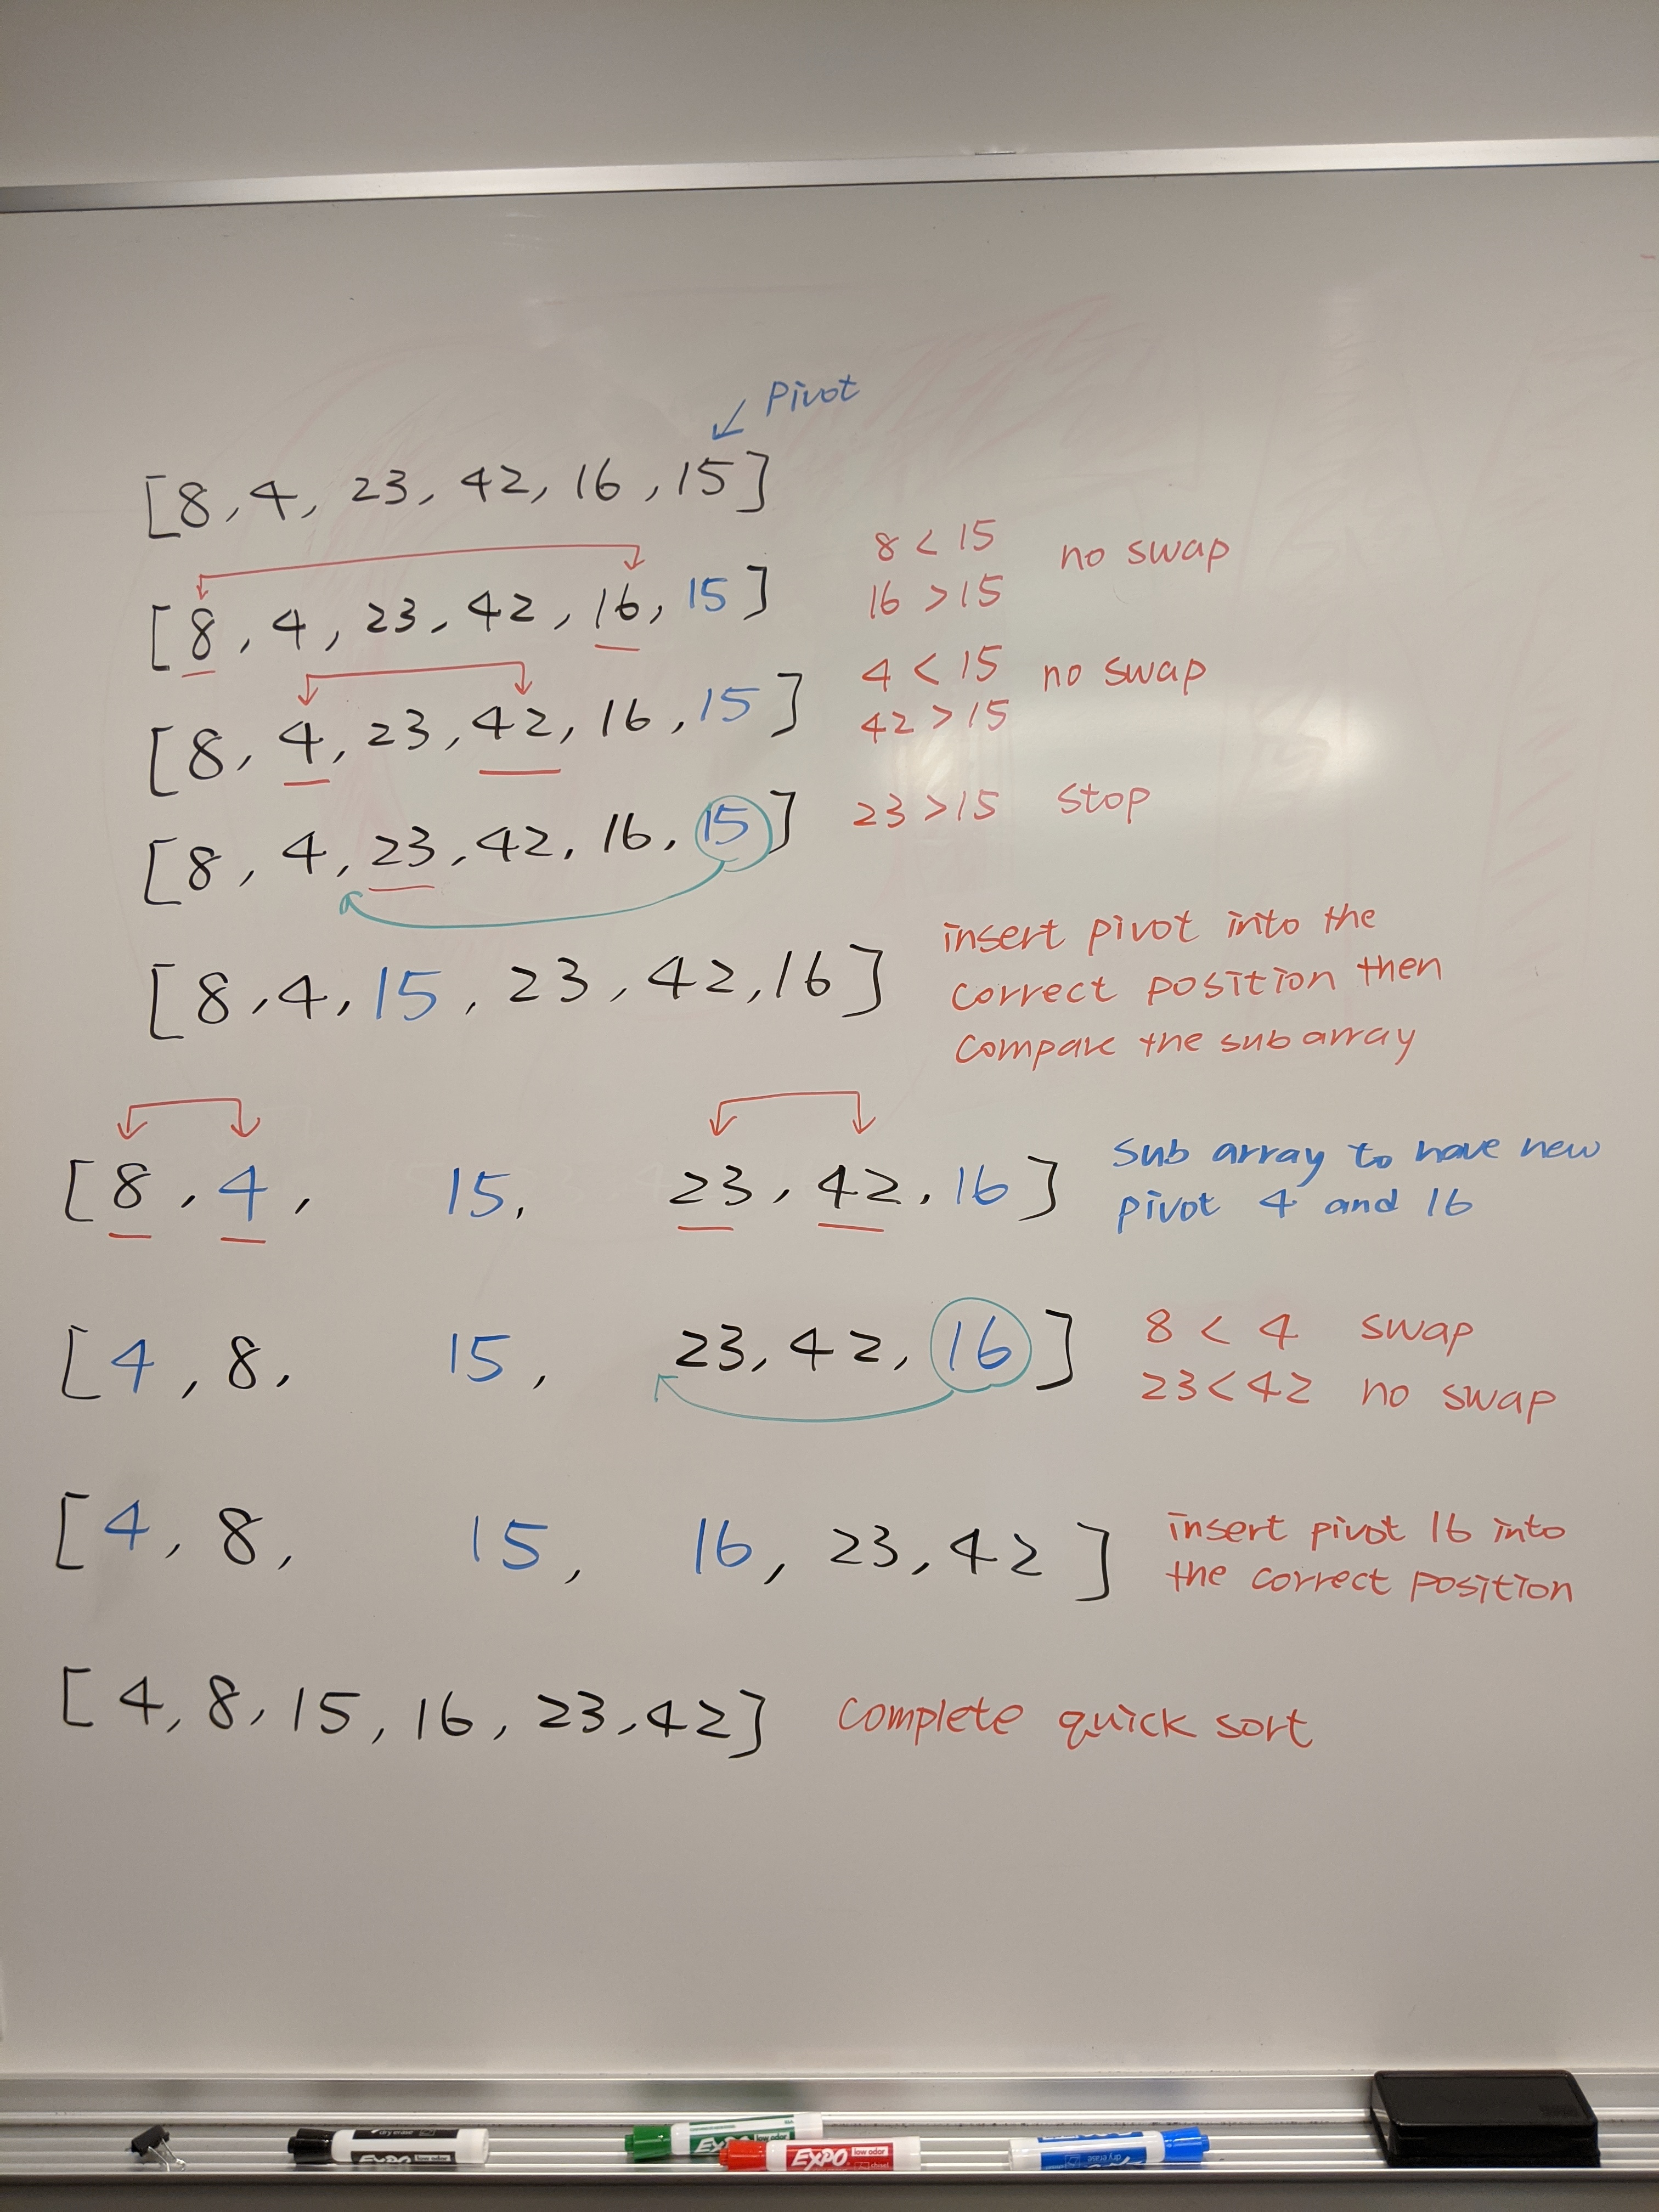 Pivot
[8, 4, 23, 42, 16, 15]
8 < 15
no swap
16 > 15
[8, 4, 23, 42, 16, 15]
4 < 15 no swap
42 > 15
[8, 4, 23, 42, 16, 15]
23 > 15 stop
[8, 4, 23, 42, 16, 15]
insert pivot into the
correct position then
compare the sub array
[8, 4, 15, 23, 42, 16]
[8, 4, 15, 23, 42, 16]
sub array to have new
pivot 4 and 16
[4, 8, 15, 23, 42, 16]
8 < 4 swap
23 < 42 no swap
[4, 8, 15, 16, 23, 42]
insert pivot 16 into
the correct position
[4, 8, 15, 16, 23, 42] complete quick sort
dry erase
EXPO
EXPO low odor
EXPO low odor
dry erase